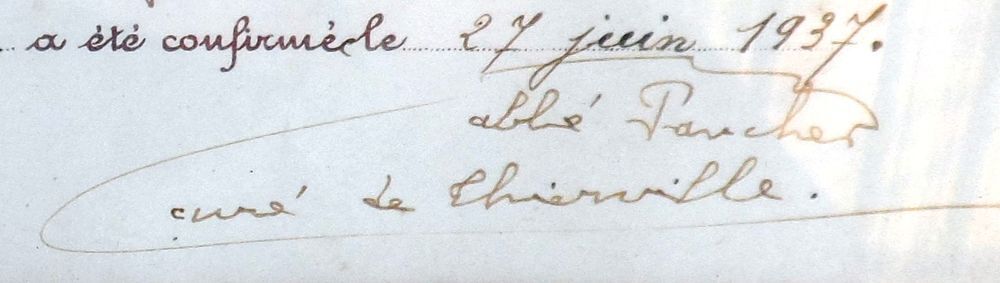 a été confirmée le 27 juin 1937.
abbé Faucher
curé de Thierville.